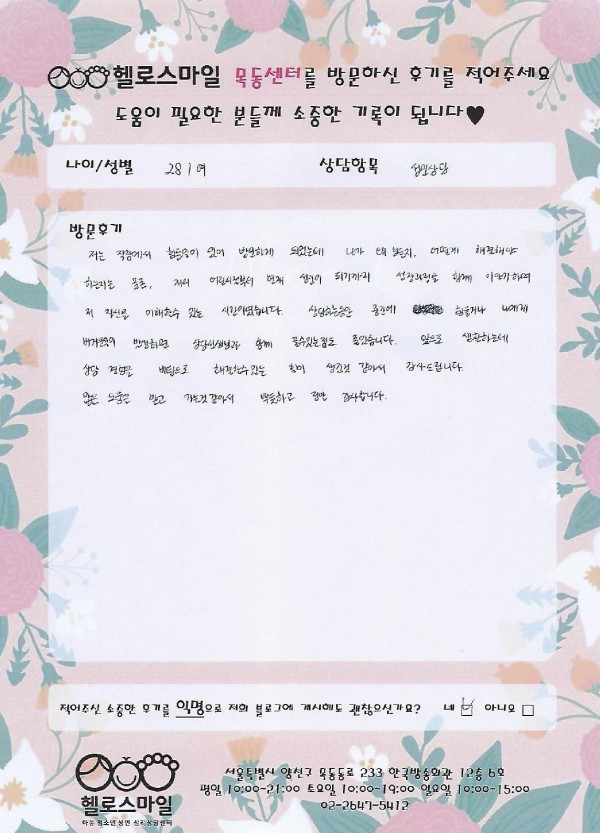 헬로스마일 목동센터를 방문하신 후기를 적어주세요
도움이 필요한 분들께 소중한 기록이 됩니다♥
나이/성별 28 / 여 상담항목 성인상담
방문후기
저는 직장에서 힘든일이 있어 방문하게 되었는데 내가 왜 힘든지, 어떻게 해결해야
하는지는 물론, 저의 어린시절부터 현재 성인이 되기까지 성장과정을 함께 이야기하며
저 자신을 이해할수 있는 시간이었습니다. 상담하는동안 중간에 힘들거나 나에게
버거웠던 방법하면 상담선생님과 함께 풀수있는점도 좋았습니다. 앞으로 생활하는데
상담 경험을 바탕으로 해결할수있는 힘이 생긴것 같아서 감사드립니다.
많은 도움을 받고 가는것 같아서 뿌듯하고 정말 감사합니다.
적어주신 소중한 후기를 익명으로 저희 블로그에 게시해도 괜찮으신가요? 네 ☑ 아니오 □
헬로스마일
아동 청소년 성인 심리상담센터
서울특별시 양천구 목동동로 233 한국방송회관 12층 6호
평일 10:00-21:00 토요일 10:00-19:00 일요일 10:00-15:00
02-2647-5412